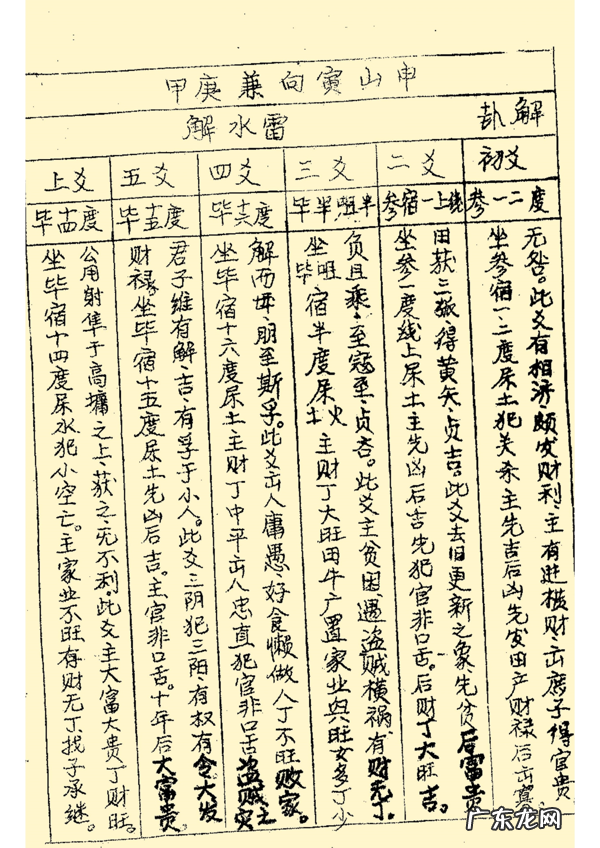 申山寅向兼庚甲
解卦
雷水解
初爻
参一二度
无咎。此爻有相济颇发财利主有进横财出庶子得官贵
坐参宿一、二度尿土犯关杀主先吉后凶先发田产财禄后出寡
二爻
参宿一上线
田获三狐得黄矢、贞吉。此爻去旧更新之象先贫后富贵
坐参一度线上尿土主先凶后吉先犯官非口舌。后财丁大旺吉。
三爻
毕半觜半
负且乘、至寇至、贞吝。此爻主贫困、遇盗贼横祸有财无丁
坐觜毕宿半度尿火土主财丁大旺田牛广置家业兴旺女多丁少
四爻
毕十六度
解而拇、朋至斯孚。此爻出人庸愚好食懒做人丁不旺败家。
坐毕宿十六度尿土主财丁中平出人忠直犯官非口舌盗贼之灾
五爻
毕十五度
君子维有解、吉、有孚于小人。此爻三阴犯三阳、有权有令大发
财禄。坐毕宿十五度尿土先凶后吉。主官非口舌。十年后大富贵
上爻
毕十四度
公用射隼于高墉之上、获之无不利。此爻主大富大贵丁财旺。
坐毕宿十四度尿水犯小空亡。主家业不旺有财无丁找子承继。
广东龙网